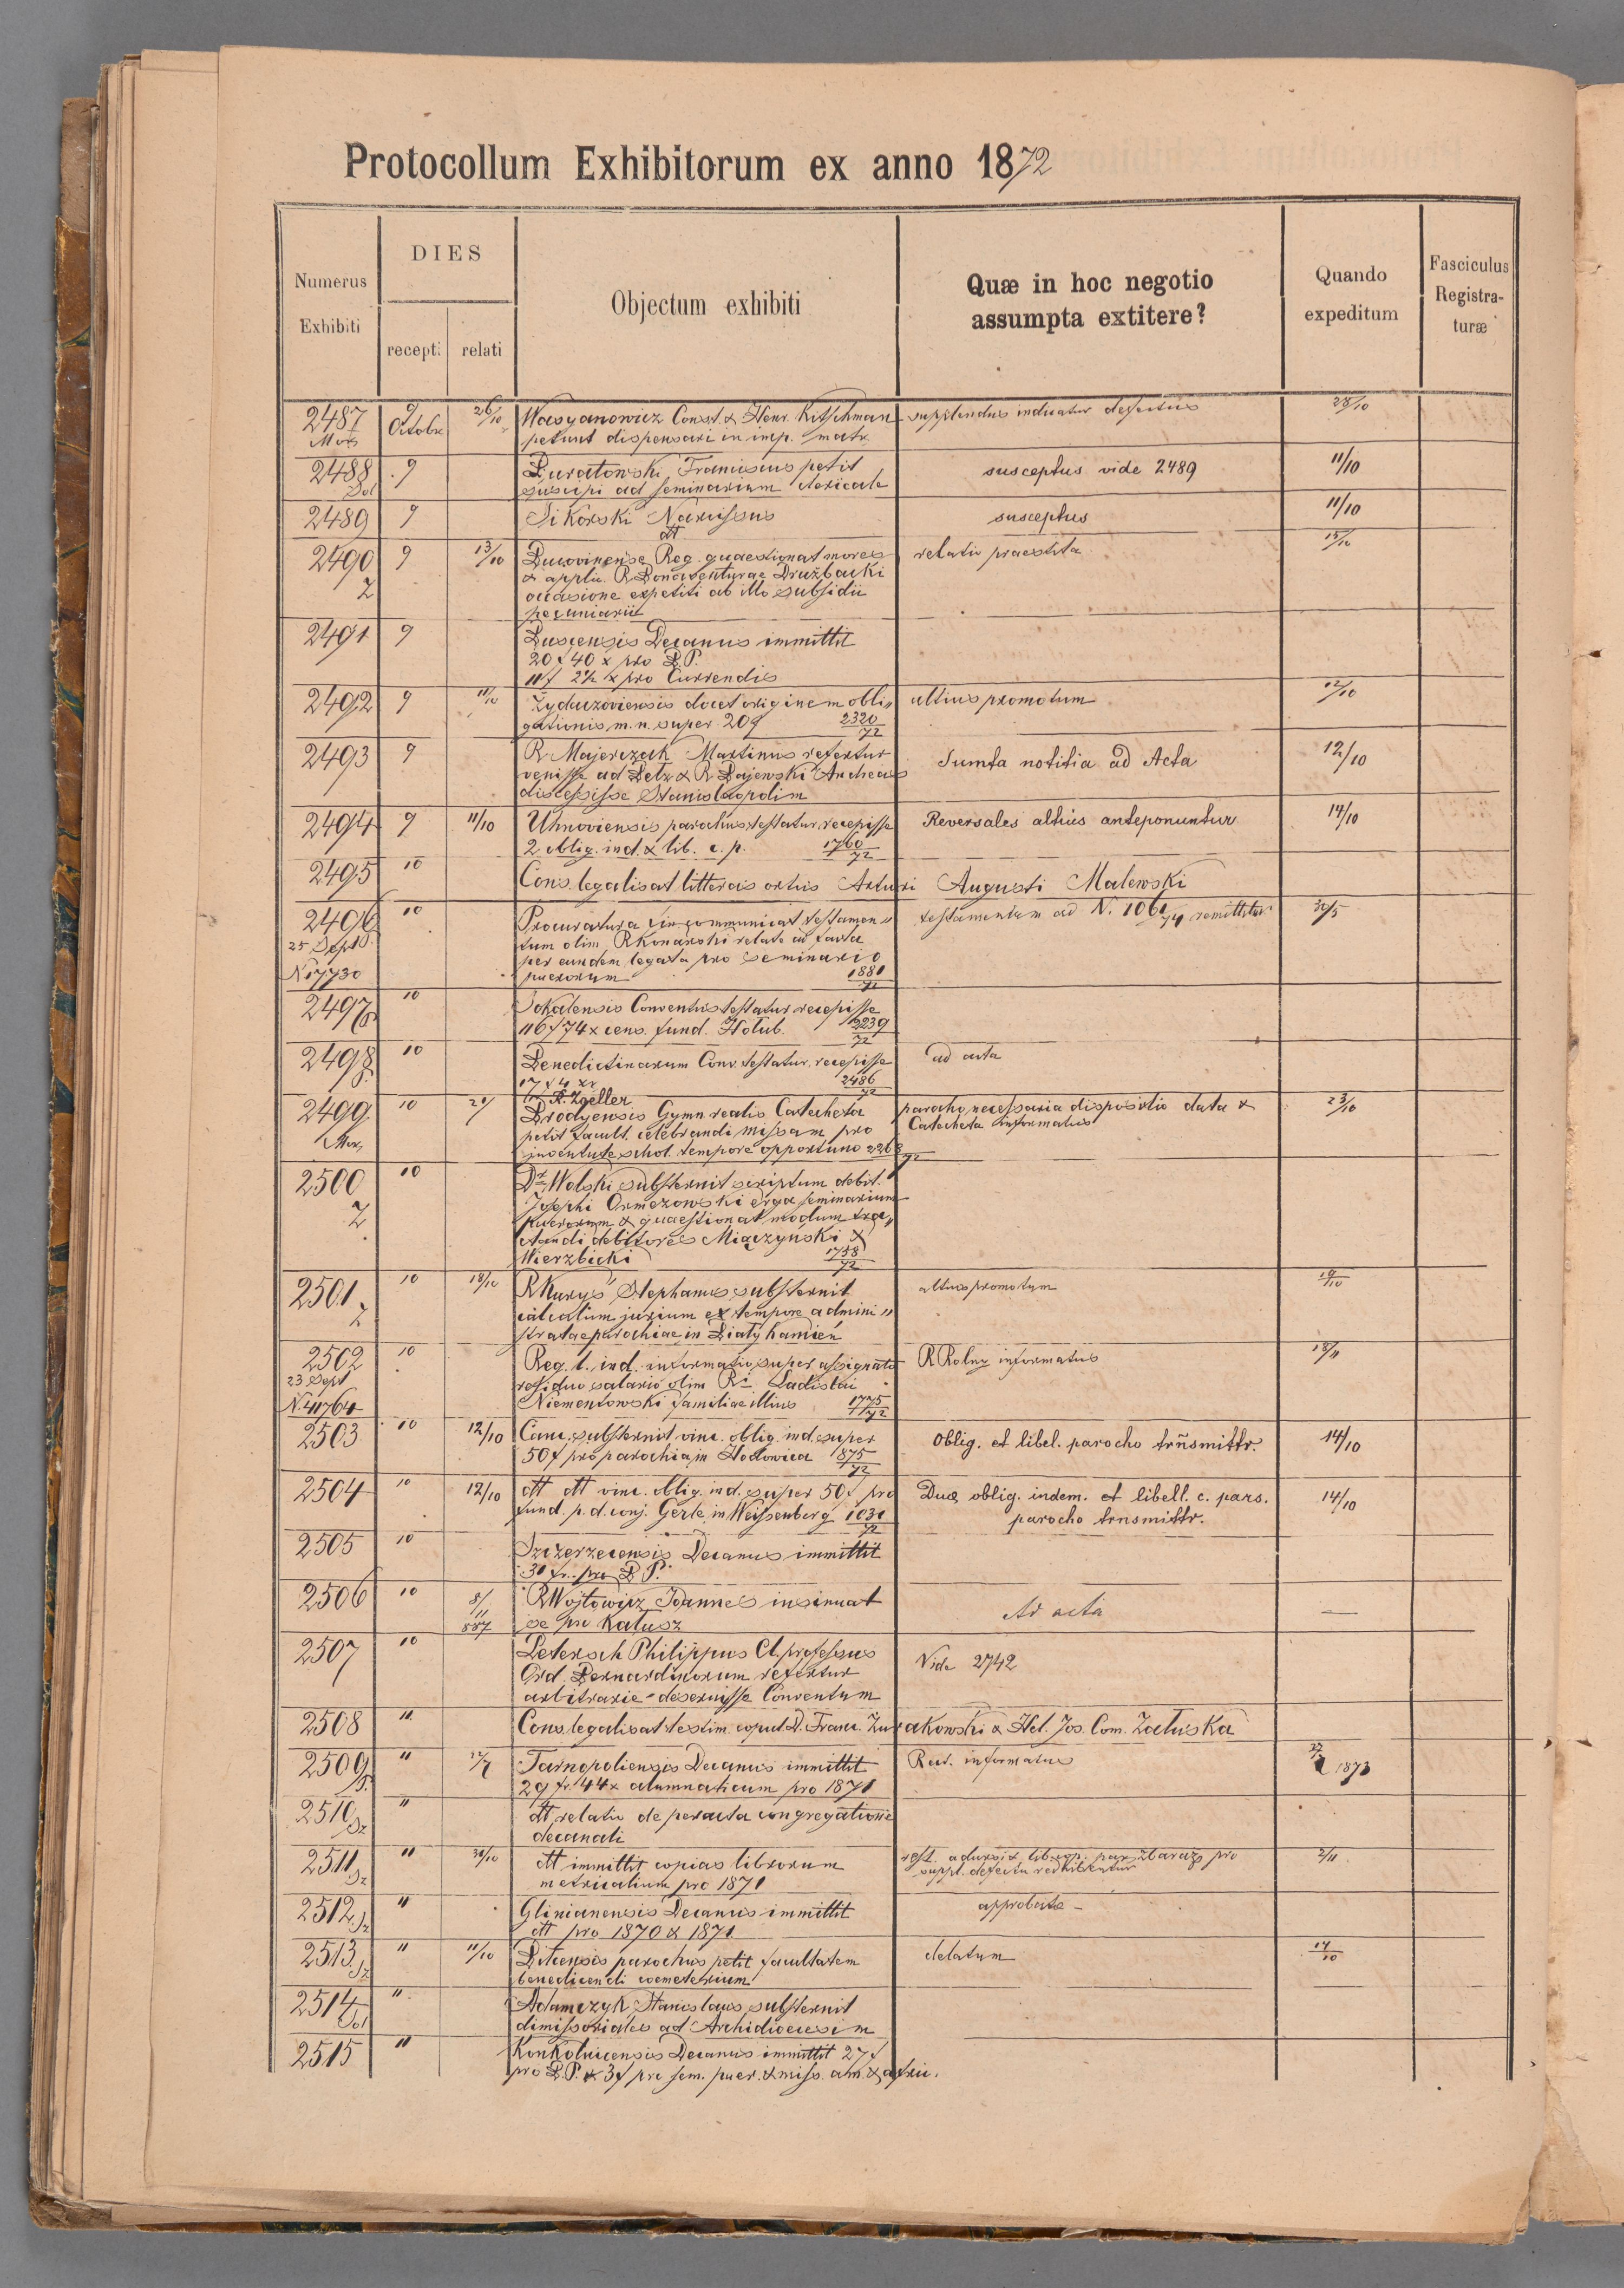 Protocollum Exhibitorum ex anno 1872
Numerus Exhibiti
DIES
recepti
relati
Objectum exhibiti
Quæ in hoc negotio
assumpta extitere?
Quando
expeditum
Fasciculus
Registra-
turæ
2487 9 26/10 Wasyanowicz Const. & Henr. Kitschman supplendus indicatur defectus 28/10
Octobr petunt dispensari in imp. matr.
2488 9 Buratowski Franciscus petit susceptus vide 2489 11/10
suscipi ad seminarium clericale
2489 9 Sikorski Narcissus susceptus 11/10
dtt
2490 9 13/10 Bucovinense Reg. quaestionat mores relatio praestita 15/10
Z & applic. R Bonaventurae Družbacki
occasione expetiti ab illo subsidii
pecuniarii
2491 9 Buscensis Decanus immittit
20 f 40 x pro B.P.
11 f 2½ x pro Currendis
2492 9 11/10 Żydaczoviensis docet originem obli„ altius promotum 12/10
gationis m. n. super 209 2320/72
2493 9 R. Majerczak Martinus refertur Sumta notitia ad Acta 12/10
venisse ad Belz & R Bajewski Andreas
discessisse Stanislaopolim
2494 9 11/10 Uhnoviensis parochus testatur, recepisse Reversales altius anteponuntur 14/10
2 oblig. ind. & lib. c. p. 1760/72
2495 10 Cons. legalisat litteras ortus Arturi Augusti Malewski
2496 10 Procuratura fin communicat testamen„ testamentum ad N. 1061/74 remittitur 30/5
25 Sept tum olim R Konarski relate ad facta
per eundem legata pro seminario
N 17730 puerorum 1881/72
2497 10 Sokalensis Conventus testatur recepisse
116 f 74 x cens. fund. Holub. 2239/72
2498 10 Benedictinarum Conv. testatur, recepisse ad acta
17 f 4 xr 2486/72
R. Zoeller
2499 10 20/ Brodyensis Gymn. realis Catecheta parocho necessaria dispositio data & 23/10
Mor petit facult. celebrandi missam pro Catecheta informatus
juventute schol. tempore opportuno 2268/72
2500 10 Dr. Wolski substernit scriptum debit.
Z Josephi Ormezowski erga seminarium
puerorum & quaestionat modum tra„
ctandi debitores Miączyński &
Wierzbicki 1758/72
2501 10 18/10 R Kuryś Stephanus substernit altius promotum 19/10
Z calculum jurium ex tempore admini„
stratae parochiae in Biały kamień
2502 10 Reg. l. ind. informatio super assignato R Rolny informatus 18/11
23 Sept residuo salario olim Ri Ladislai
N. 41764 Niementowski familiae illius 1775/72
2503 10 12/10 Canc. substernit vinc. oblig. ind. super Oblig. et libel. parocho trñsmittr. 14/10
50 f pro parochia in Hodowica 875/72
2504 10 12/10 dtt dtt vinc. oblig. ind. super 50 f pro Duæ oblig. indem. et libell. c. pars. 14/10
fund. p. d. conj. Gerle in Weissenberg 1031/72 parocho trnsmittr.
2505 10 Szczerzecensis Decanus immittit
31 fr. pro B P.
2506 10 8/11 R Wojtowicz Joannes insinuat Ad acta —
887 se pro Kałusz
2507 10 Petersch Philippus Cl. professus Vide 2742
Ord. Bernardinorum refertur
arbitrarie deseruisse Conventum
2508 11 Cons. legalisat testim. copul. D. Franc. Żurakowski & Hel. Jos. Com. Załuska
2509 " Tarnopoliensis Decanus immittit Rect. informatus 1873
29 fr. 44 x alumnaticum pro 1871
2510 " dtt relatio de peracta congregatione
Dz decanali
2511 " 31/10 dtt immittit copias librorum rest. pro 2/11
Dz metricalium pro 1871 suppl. defectu
2512 " Glinianensis Decanus immittit approbata –
Dz dtt pro 1870 & 1871
2513 " 11/10 Bitcensis parochus petit facultatem delatum 14/10
Dz benedicendi coemeterium
2514 " Adamczyk Stanislaus substernit
Dol dimissoriales ad Archidiocesim
2515 " Konkolnicensis Decanus immittit 27 f
pro B.P. & 3 f pro sem. puer. & miss. am. & afric.